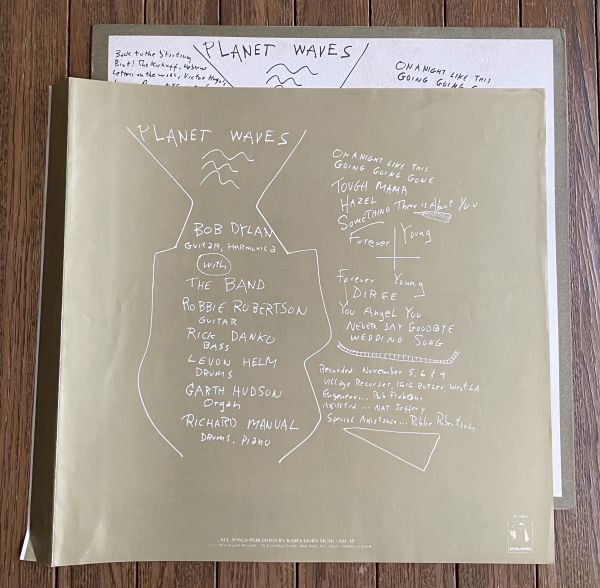 Back to the Starting
Point! The Kickoff, Hebrew
Letters on the wall, Victor Hugo's
PLANET WAVES
ON A NIGHT LIKE THIS
GOING GOING G
PLANET WAVES
BOB DYLAN
GUITAR, HARMONICA
with
THE BAND
ROBBIE ROBERTSON
GUITAR
RICK DANKO
BASS
LEVON HELM
DRUMS
GARTH HUDSON
Organ
RICHARD MANUAL
DRUMS, PIANO
ON A NIGHT LIKE THIS
GOING GOING GONE
TOUGH MAMA
HAZEL
SOMETHING There is About You
Forever Young
Forever Young
DIRGE
You Angel You
NEVER SAY GOODBYE
WEDDING SONG
Recorded November 5, 6 & 9
Village Recorder, 1616 Butler, West LA
Engineer... Rob Fraboni
Assisted... NAT Jeffery
Special Assistance... Robbie Robertson
ALL SONGS PUBLISHED BY RAM'S HORN MUSIC - ASCAP